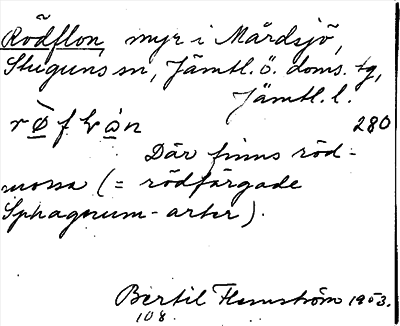 Rödflon, myr i Mårdsjö,
Stuguns sn, Jämtl. ö. doms. tg,
Jämtl. l.
280
Där finns röd-
mossa (= rödfärgade
Sphagnum-arter).
Bertil Flemström 1953.
108